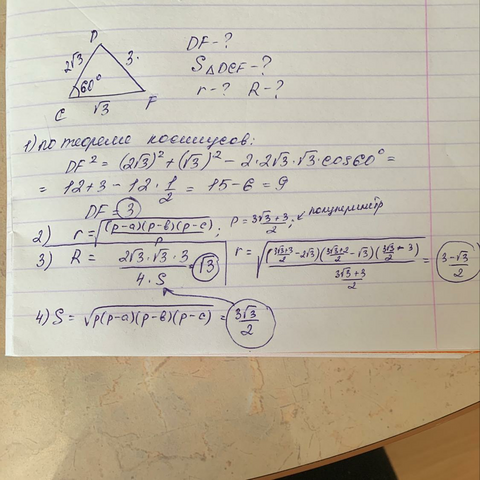 D
2√3
3
60°
C
√3
F
DF - ?
S△DCF - ?
r - ? R - ?
1) по теореме косинусов:
DF² = (2√3)² + (√3)² - 2·2√3·√3·cos60° =
= 12+3 - 12·1/2 = 15-6 = 9
DF = 3
2) r = √((p-a)(p-b)(p-c)/p); p = (3√3+3)/2; ↙ полупериметр
3) R = (2√3·√3·3)/(4·S) = √3
r = √(((3√3+3)/2 - 2√3)((3√3+2)/2 - √3)((3√3)/2 + - 3)/((3√3+3)/2)) = (3-√3)/2
4) S = √(p(p-a)(p-b)(p-c)) = 3√3/2